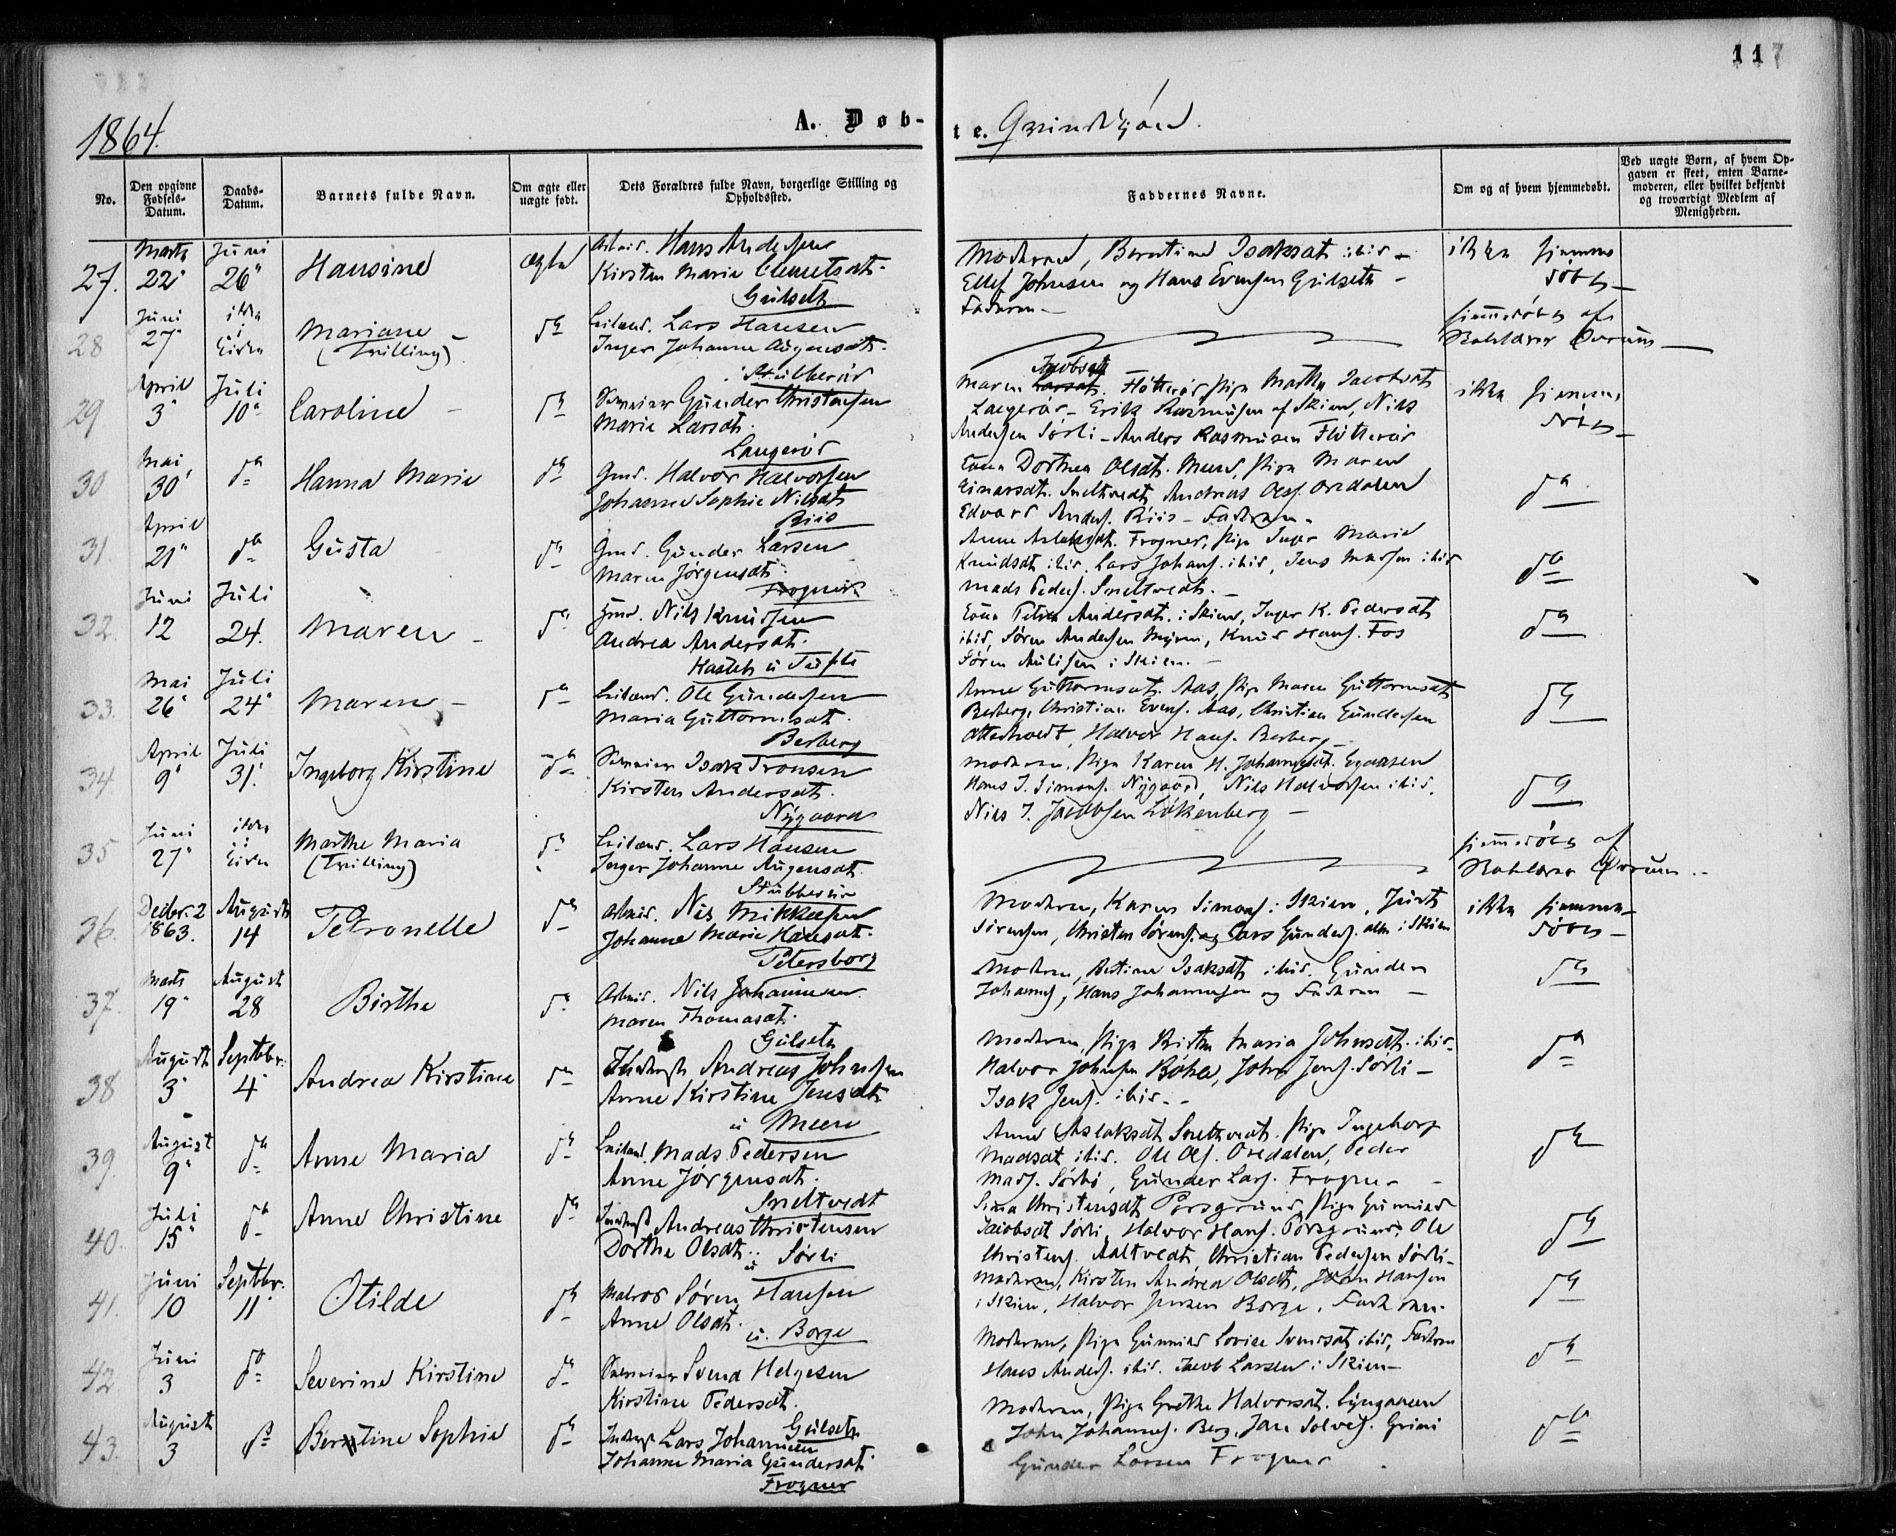 117
1864.
A. Døb-
te. Qvindekjøn.
No.
Den opgivne Fødsels-Datum.
Daabs-Datum.
Barnets fulde Navn.
Om ægte eller uægte født.
Dets Forældres fulde Navn, borgerlige Stilling og Opholdssted.
Faddernes Navne.
Om og af hvem hjemmedøbt.
Ved uægte Børn, af hvem Opgaven er skeet, enten Barnemoderen, eller hvilket bekjendt og troværdigt Medlem af Menigheden.
27. Marts 22 Juni 26 Hansine ægte Arbeid. Hans Andersen
Kirsten Maria Clemetsdt.
Gulseth
Moderen, Berntine Isaksdt ibid –
Ellef Johnsen og Hans Evensen Gulseth –
Faderen –
ikke hjemmedøbt –
28 Juni 27 ikke i Kirken Mariane – (Tvilling) do Leiland. Lars Hansen
Inger Johanne Augensdt.
Stubberød
hjemmedøbt af
Kirkelærer Qvrum
29 April 3 Juli 10 Caroline – do Gunder Christensen
Maria Larsdt.
Langerød
Maren Jacobsdt. Flötterød, Pige Marthe Jacobsdt
Langerød – Erik Rasmusen af Skien, Niels
Andersen Sørli – Anders Rasmusen Flötterød
ikke hjemmedøbt –
30 Mai 30 do Hanna Marie do Gmd. Halvor Halvorsen
Johanne Sophie Nilsdt
Riis
Kone Dorthea Olsdt. Meen, Pige Maren
Einarsdt. Sneltvedt, Andreas Ols. Oredalen
Edvard Anders. Riis – Faderen.
do
31. April 21 do Gusta do Gmd. Gunder Larsen
Maren Jørgensdt.
Frogner
Anne Aslaksdt. Frogner, Pige Inger Marie
Knudsdt ibid. Lars Johans. ibid, Jens Madsen ibid
Mads Peders. Sneltvedt. –
do
32. Juni 12 Juli 24. Maren – do Gmd. Nils Knudsen
Andrea Andersdt.
u Tufte
Kone Andersdt. i Skien, Inger K. Pedersdt
ibid, Søren Andersen Myren, Knud Hans. Fos
Søren i Skien. –
do
33. Mai 26 Juli 24 Maren – do Leiland. Ole Gundersen
Maria Guttormsdt.
Berberg
Anne Guttormsdt. Aas, Pige Maren Guttormsdt
Berberg, Christian Evens. Aas, Christian Gundersen
Halvor Hans. Berberg –
do
34 April 9 Juli 31. Ingeborg Kirstine do Isak Tronsen
Kirsten Andersdt.
Nygaard
Moderen, Pige Karen H. Johannesdt.
Hans I. Simons. Nygaard, Nils Halvorsen ibid.
Nils J. Jacobsen Løkenberg –
do
35 Juni 27 ikke i Kirken Marthe Maria (Tvilling) do Leiland. Lars Hansen
Inger Johanne Augensdt.
Stubberød
hjemmedøbt af
Kirkelærer Qvrum
36. Decbr. 2 1863. August 14 Petronelle do Arbeid. Nils Mikkelsen
Johanne Marie Hansdt.
Petersborg
Moderen, Karen Simons. i Skien, Just
Sørensen, Christen Sørens. og Lars Gunders. alle i Skien
ikke hjemmedøbt –
37. Marts 19 August 28 Birthe do Arbeid. Nils Johannesen
Maren Thomasdt.
Gulseth
Moderen, Bettine Isaksdt ibid. Gunder
Johannes., Hans Johannesen og Faderen –
do
38 August 3 Septbr. 4 Andrea Kirstine do Inderst Andreas Johnsen
Anne Kirstine Jensdt.
u Meen
Moderen, Pige Birthe Maria Johnsdt. ibid.
Halvor Johnsen Böhle, John Jens. Sørli –
Isak Jens. ibid. –
do
39. August 9 do Anne Maria do Leiland. Mads Pedersen
Anne Jørgensdt.
Sneltvedt
Anne Aslaksdt Sneltvedt. Pige Ingeborg
Madsdt ibid. Ole Ols. Oredalen, Peder
Mads. Sörbö, Gunder Lars. Frogner –
do
40. Juli 15 do Anne Christine do Inderst Andreas Christensen
Dorthe Olsdt.
u Sørli
Christensdt Porsgrund, Pige Gunnild
Jacobsdt Sørli, Halvor Hans. Porsgrund, Ole
Christens. Christian Pedersen Sørli –
do
41. Juni 10 Septbr. 11 Otilde do Matros Søren Hansen
Anne Olsdt.
u. Borge
Moderen, Kirsten Andrea Olsdt, John Hansen
i Skien, Halvor Jensen Borge, Faderen.
do
42. Juni 3 do Severine Kirstine do Svend Helgesen
Kirstine Pedersdt.
Gulseth
Moderen, Pige Gunnild Lovise Svendsdt ibid, Faderen
Hans Anders. ibid. Jacob Larsen i Skien –
do
43. August 3 do Berntine Sophie do Inderst Lars Johannesen
Johanne Maria Gundersdt.
Frogner
Moderen, Pige Grethe Halvorsdt.
John Johannes. Berg, Jan Solves. Grini
Gunder Larsen Frogner
do